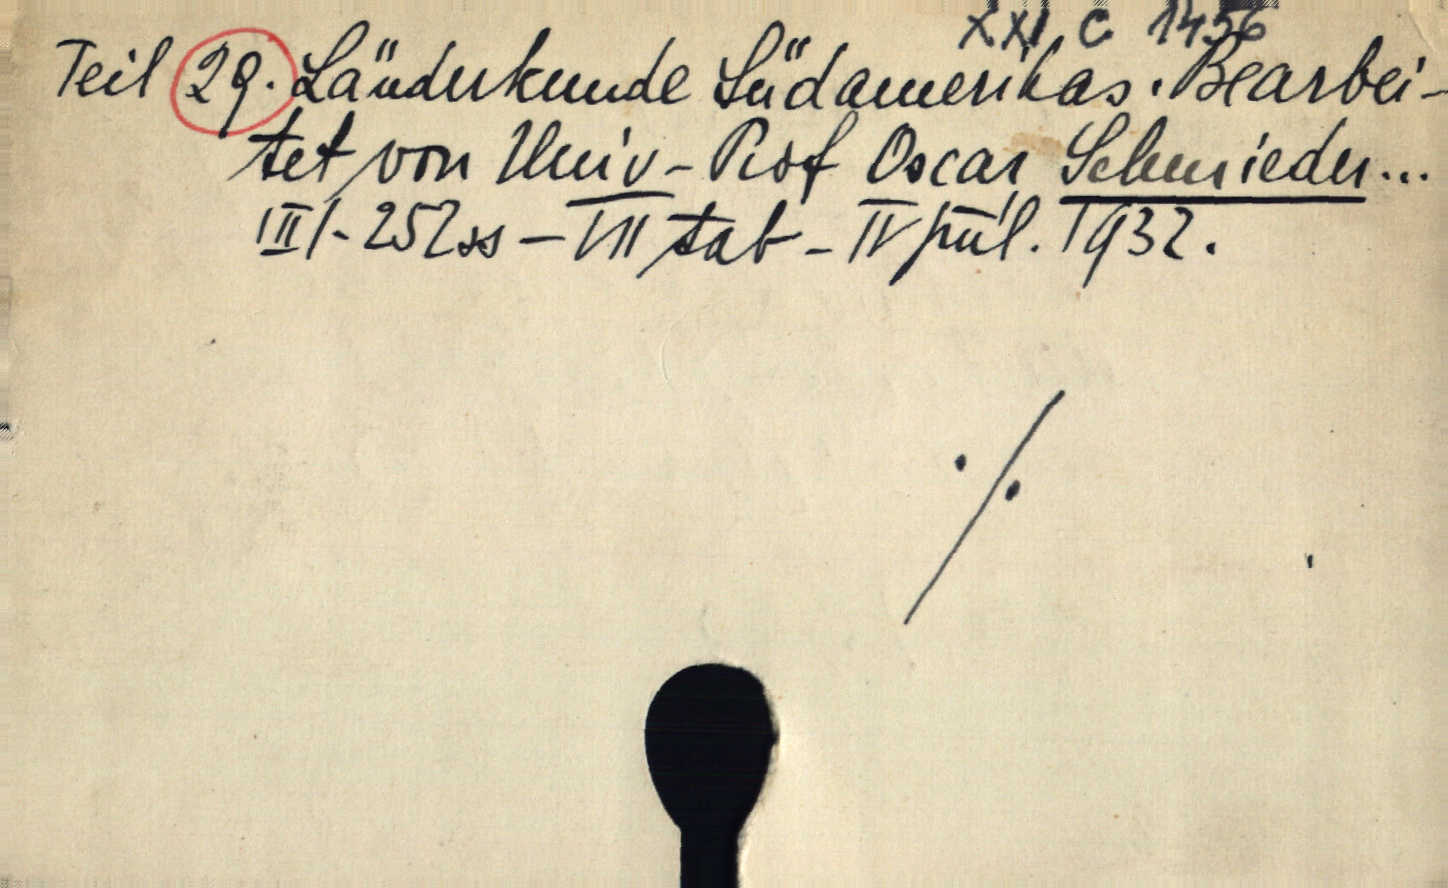 XXI C 1456
Teil 29. Länderkunde Südamerikas. Bearbei-
tet von Univ-Prof Oscar Schmieder...
III - 252 ss - VII tab - IV púl. 1932.
./.